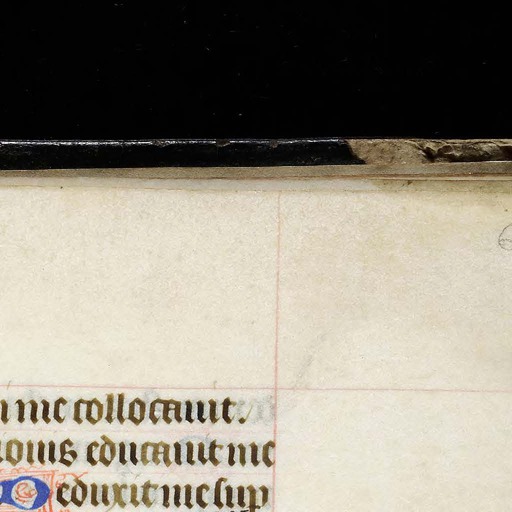 me collocauit.
educauit me
Deduxit me sup